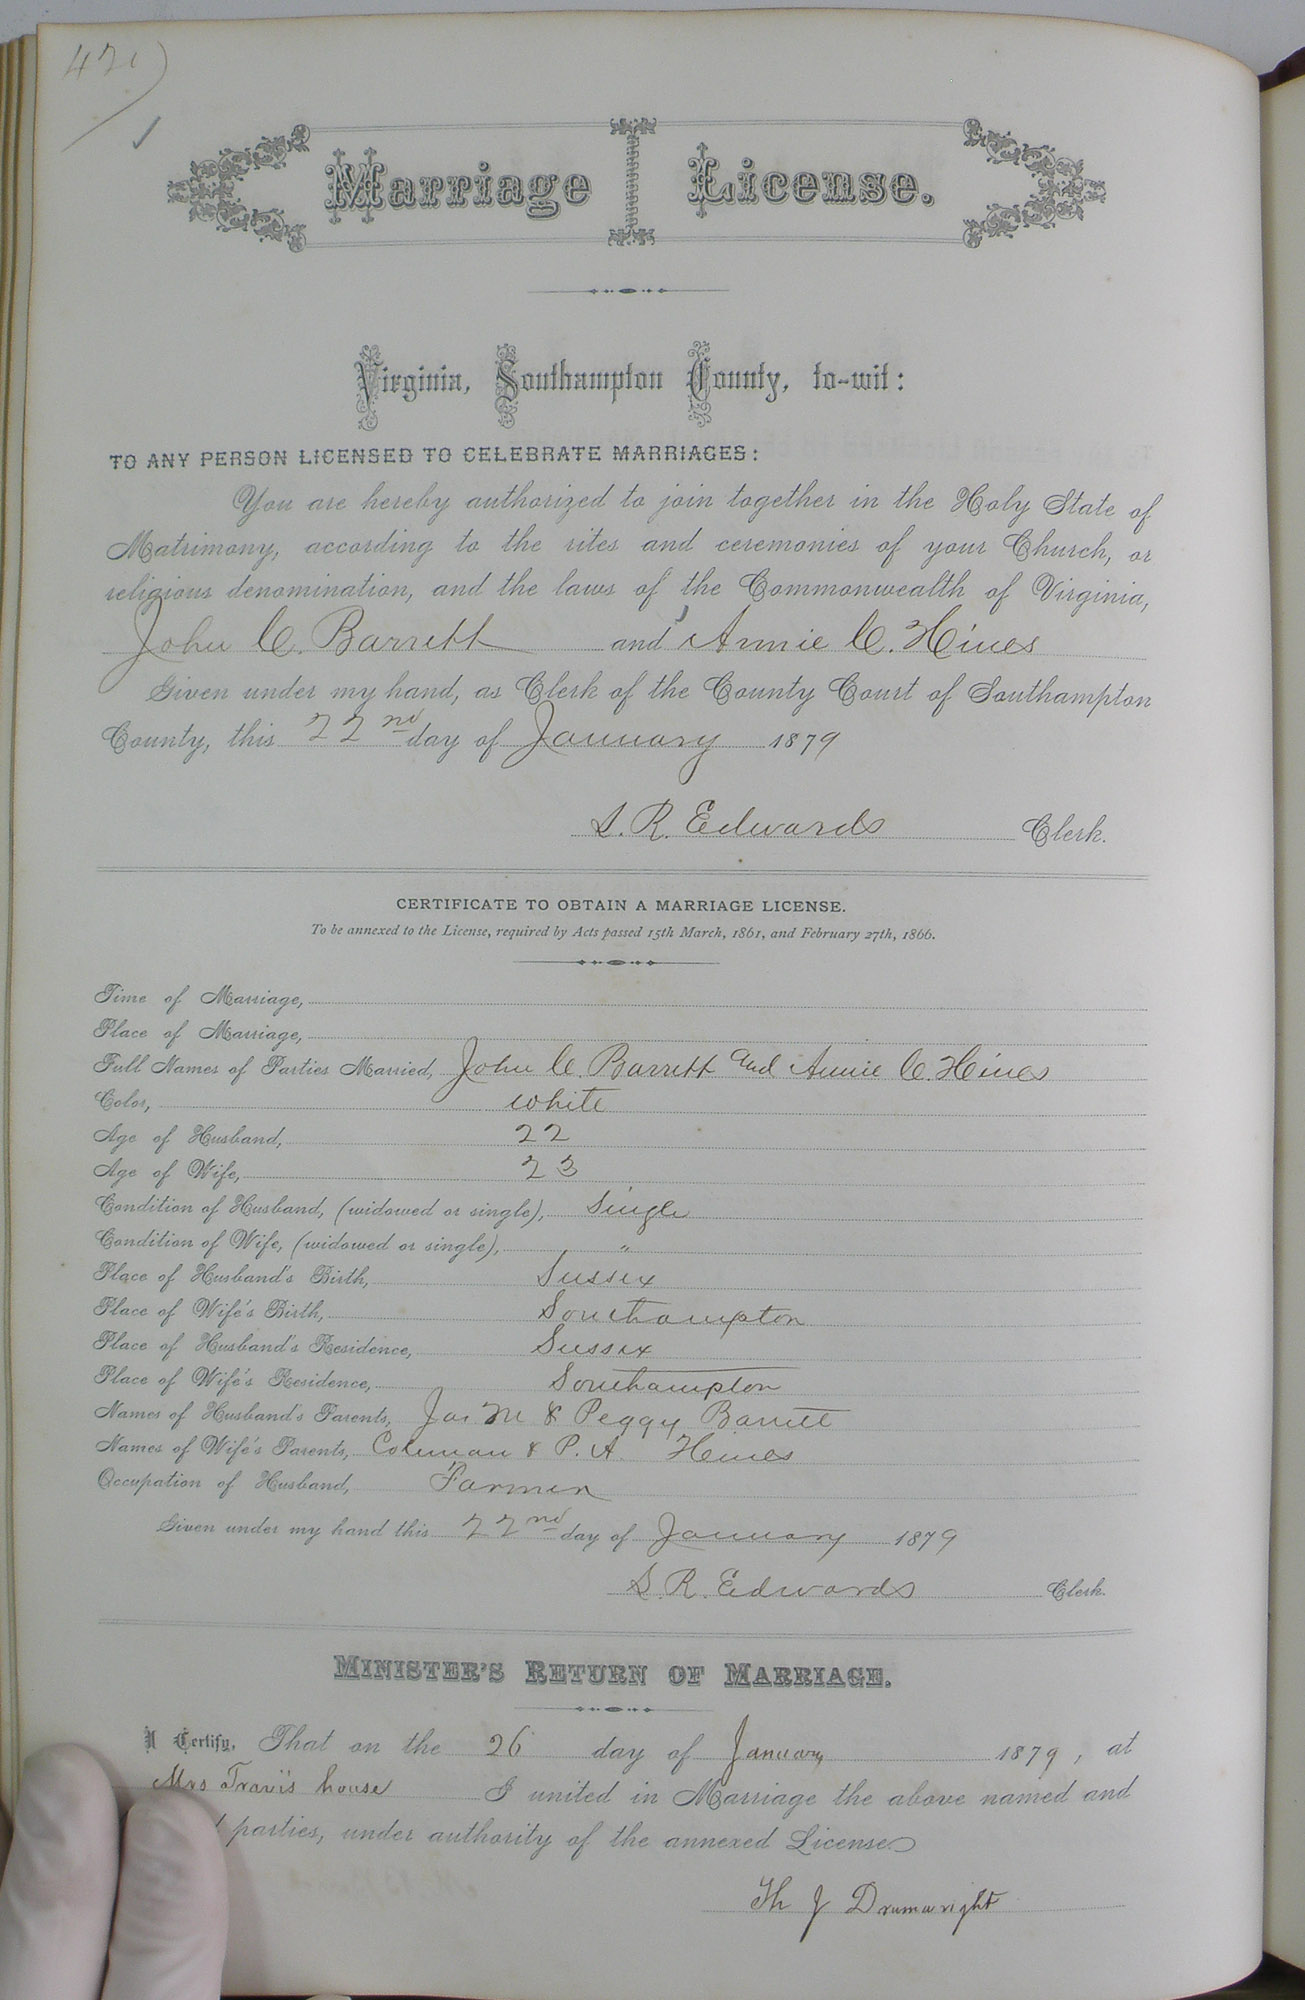 Marriage License.
Virginia, Southampton County, to-wit:
TO ANY PERSON LICENSED TO CELEBRATE MARRIAGES:
You are hereby authorized to join together in the Holy State of
Matrimony, according to the rites and ceremonies of your Church, or
religious denomination, and the laws of the Commonwealth of Virginia,
John C. Barrett and Annie C. Hines
Given under my hand, as Clerk of the County Court of Southampton
County, this 22nd day of January 1879
S. R. Edwards Clerk.
CERTIFICATE TO OBTAIN A MARRIAGE LICENSE.
To be annexed to the License, required by Acts passed 15th March, 1861, and February 27th, 1866.
Time of Marriage,
Place of Marriage,
Full Names of Parties Married, John C. Barrett and Annie C. Hines
Color, white
Age of Husband, 22
Age of Wife, 23
Condition of Husband, (widowed or single), Single
Condition of Wife, (widowed or single), "
Place of Husband's Birth, Sussex
Place of Wife's Birth, Southampton
Place of Husband's Residence, Sussex
Place of Wife's Residence, Southampton
Names of Husband's Parents, M & Peggy Barrett
Names of Wife's Parents, Coleman & P. A. Hines
Occupation of Husband, Farmer
Given under my hand this 22nd day of January 1879
S. R. Edwards Clerk.
MINISTER'S RETURN OF MARRIAGE.
I Certify, That on the 26 day of January 1879, at
Mrs Travis house I united in Marriage the above named and
parties, under authority of the annexed License
Th J Drumwright